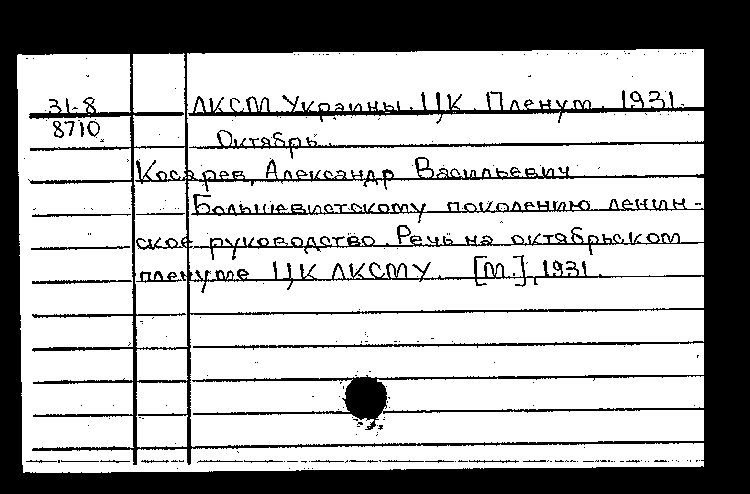 31-8
8710
ЛКСМ Украины. ЦК. Пленум. 1931.
Октябрь.
Косарев, Александр Васильевич
Большевистскому поколению ленин-
ское руководство. Речь на октябрьском
пленуме ЦК ЛКСМУ. [М.], 1931.